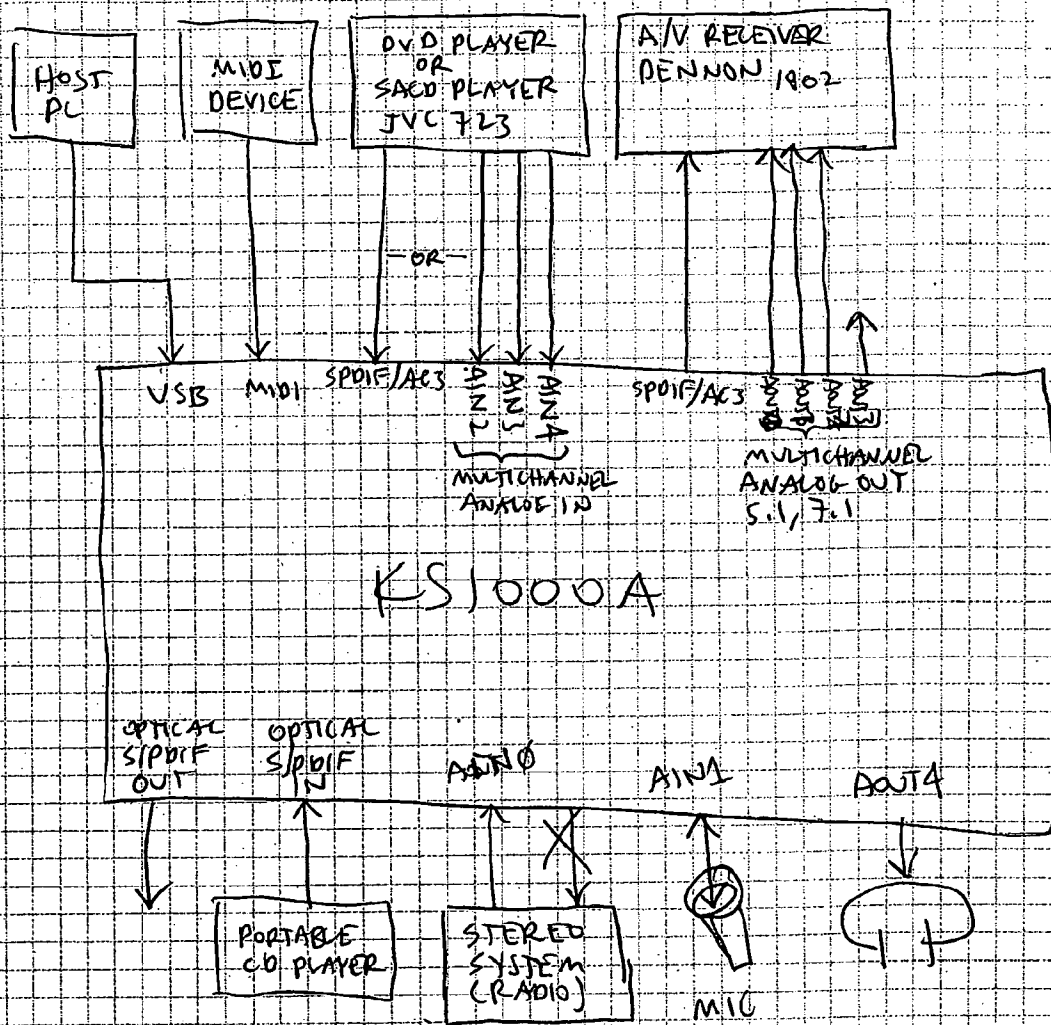 HOST
PC
MIDI
DEVICE
DVD PLAYER
OR
SACD PLAYER
JVC 723
A/V RECEIVER
DENNON 1802
—OR—
USB
MIDI
SPDIF/AC3
AIN2
AIN3
AIN4
MULTICHANNEL
ANALOG IN
SPDIF/AC3
MULTICHANNEL
ANALOG OUT
5.1, 7.1
KS1000A
OPTICAL
S/PDIF
OUT
OPTICAL
S/PDIF
IN
AIN0
AIN1
AOUT4
PORTABLE
CD PLAYER
STEREO
SYSTEM
(RADIO)
MIC